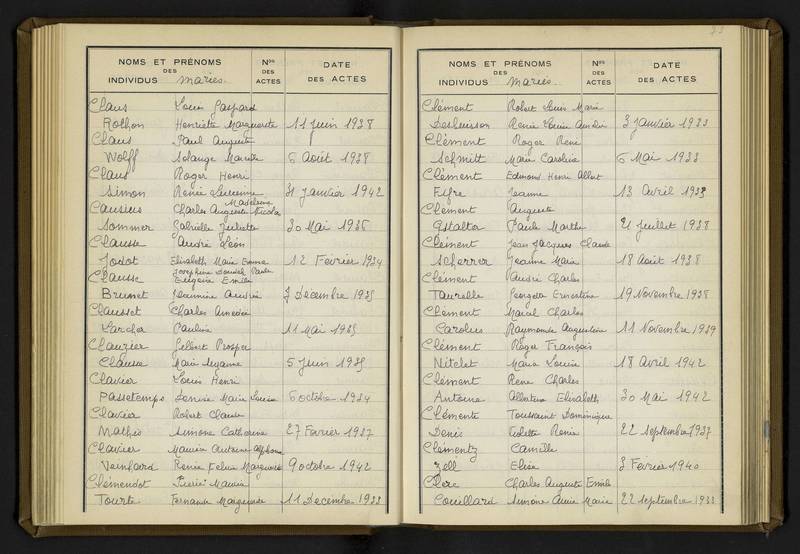 NOMS ET PRÉNOMS DES INDIVIDUS mariés. Nos DES ACTES DATE DES ACTES
Claus Louis Gaspard
Rothon Henriette Marguerite 11 juin 1938
Claus Paul Auguste
Wolff Solange Mariette 6 Août 1938
Claus Roger Henri
Simon Renée Lucienne Madeleine 31 janvier 1942
Caussus Charles Auguste Nicolas
Sommer Gabrielle Juliette 30 Mai 1936
Clausse André Léon
Jodot Elisabeth Marie Emma 12 Février 1934
Josephine
Clausse Eugène Emile
Brunet Jeannine Andrée 7 Décembre 1935
Clausset Charles Amédée
Larcher Pauline 11 Mai 1935
Clauzier Gilbert Prosper
Clausse Marie Suzanne 5 juin 1935
Clavier Louis Henri
Passetemps Denise Marie Louise 6 octobre 1934
Clavier Robert Claude
Mathis Simone Catherine 27 Février 1937
Clavier Maurice Antoine Alphonse
Veinhard Renée Marguerite 9 octobre 1942
Clémendot Pierre Maurice
Tourte Fernande Marguerite 11 Décembre 1933
NOMS ET PRÉNOMS DES INDIVIDUS mariés. Nos DES ACTES DATE DES ACTES
Clément Robert Louis Marie
Deshuisson Renée Louise Andrée 3 janvier 1933
Clément Roger René
Schmitt Marie Caroline 6 Mai 1933
Clément Edmond Henri Albert
Fifre Jeanne 13 Avril 1935
Clément Auguste
Gstalter Paule Marthe 21 juillet 1938
Clément Jean Jacques Claude
Scherrer Jeanne Marie 18 Août 1938
Clément André Charles
Taurelle Georgette Ernestine 19 Novembre 1938
Clément Marcel Charles
Carolus Raymonde Augustine 11 Novembre 1939
Clément Roger François
Nitclet Marie Louise 18 Avril 1942
Clément René Charles
Antoine Albertine Elisabeth 30 Mai 1942
Clémente Toussaint Dominique
Denis Violette Renée 22 Septembre 1937
Clémentz Camille
Zell Elise 3 Février 1940
Clerc Charles Auguste Emile
Couillard Simone Anne Marie 22 Septembre 1933